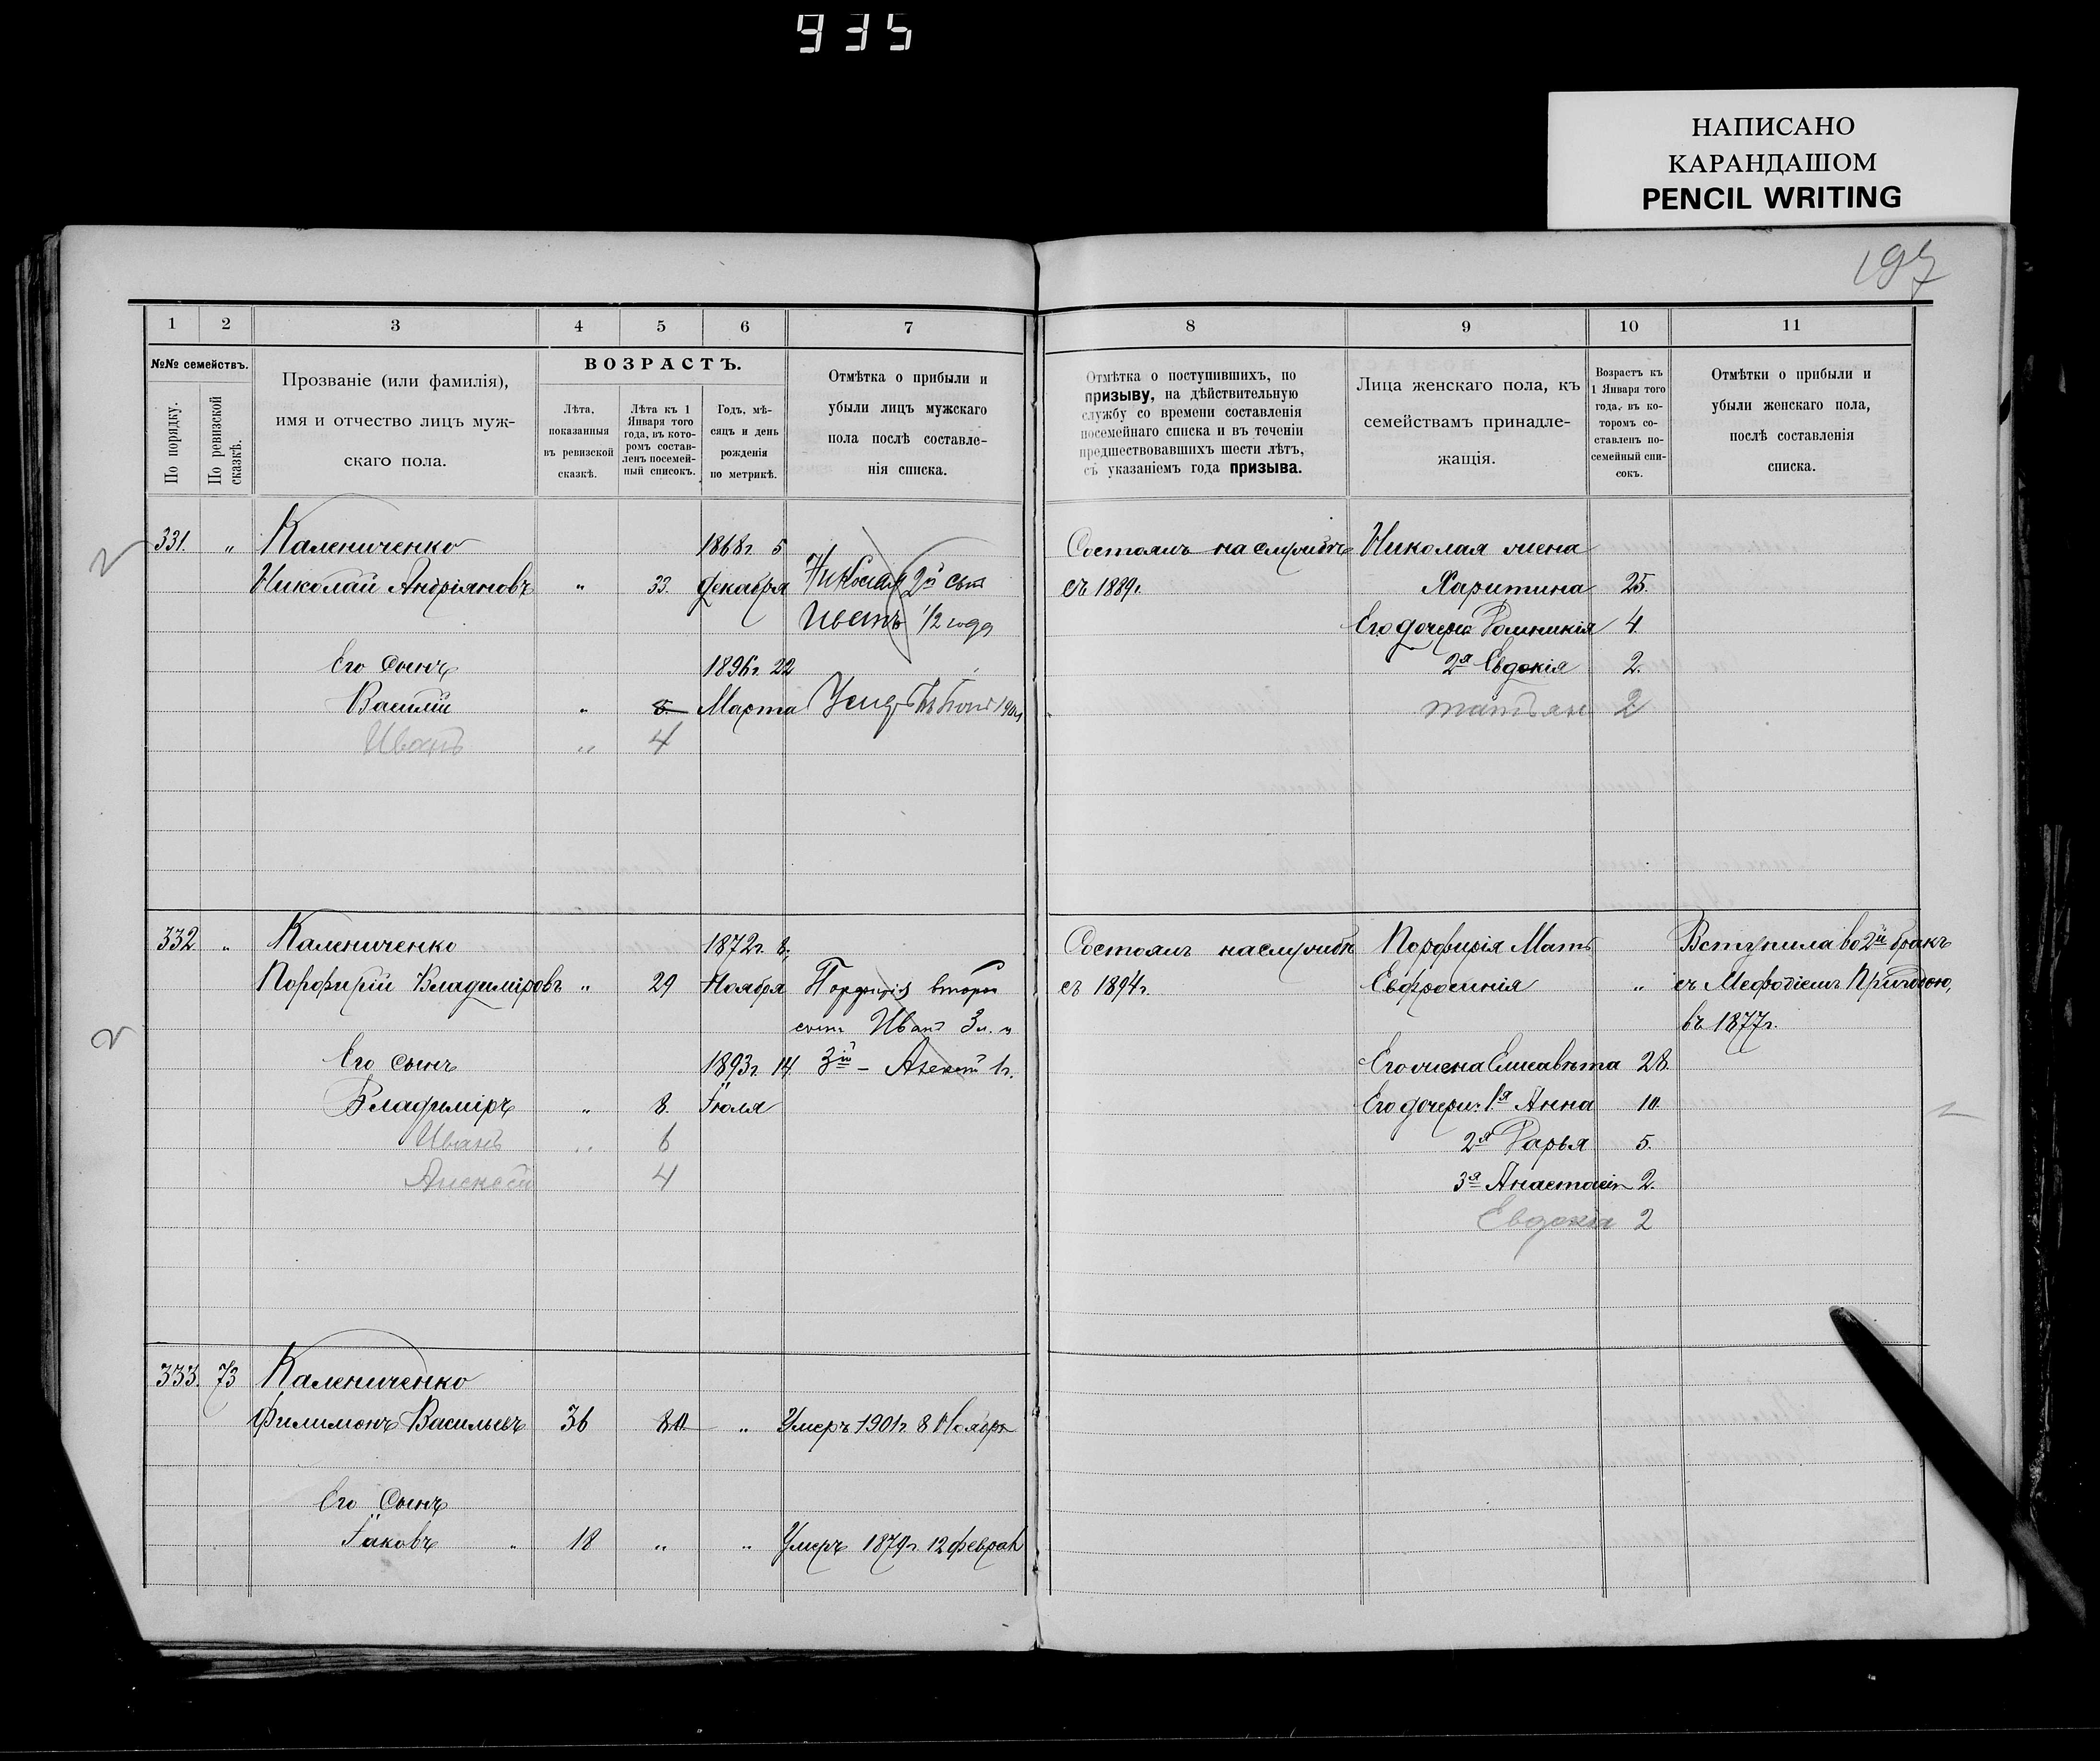 935
НАПИСАНО
КАРАНДАШОМ
PENCIL WRITING
197
1 2 3 4 5 6 7
№№ семействъ.
По порядку.
По ревизской сказкѣ.
Прозваніе (или фамилія),
имя и отчество лицъ муж-
скаго пола.
ВОЗРАСТЪ.
Лѣта,
показанныя
въ ревизской
сказкѣ.
Лѣта къ 1
Января того
года, въ кото-
ромъ состав-
ленъ посемей-
ный списокъ.
Годъ, мѣ-
сяцъ и день
рожденія
по метрикѣ.
Отмѣтка о прибыли и
убыли лицъ мужскаго
пола послѣ составле-
нія списка.
331. „ Калениченко 1868г. 5
Николай Андріяновъ „ 33. Декабря Николая 2й сын
Иванъ 1/2 года
Его Сынъ 1896г. 22
Василій „ 5. Марта
Иванъ „ 4
332 „ Калениченко 1872г. 8.
Порфирій Владиміровъ „ 29 Ноября Порфирія второй
сын Иванъ 3 л. и
Его сынъ 1893г. 14 3й – Алексѣй 1г.
Владиміръ „ 8. Іюля
Иванъ „ 6
Алексѣй 4
333. 73 Калениченко
Филимонъ Васильевъ 36 80 „ Умеръ 1901г. 8 Ноября
Его Сынъ
Іаковъ „ 18 „ „ Умеръ 1879г. 12 феврал
8 9 10 11
Отмѣтка о поступившихъ, по
призыву, на дѣйствительную
службу со времени составленія
посемейнаго списка и въ теченіи
предшествовавшихъ шести лѣтъ,
съ указаніемъ года призыва.
Лица женскаго пола, къ
семействамъ принадле-
жащія.
Возрастъ къ
1 Января того
года, въ ко-
торомъ со-
ставленъ по-
семейный спи-
сокъ.
Отмѣтки о прибыли и
убыли женскаго пола,
послѣ составленія
списка.
Состоялъ на службѣ Николая жена
съ 1889г. Харитина 25.
Его дочери Домникія 4.
2я Евдокія 2.
Татьяна 2
Состоялъ на службѣ Порфирія Мать Вступила во 2й бракъ
съ 1894г. Евфросинія „ съ Мефодіемъ Пригодою,
въ 1877г.
Его жена Елисавѣта 28.
Его дочери: 1я Анна 10.
2я Дарья 5.
3я Анастасія 2.
Евдокія 2